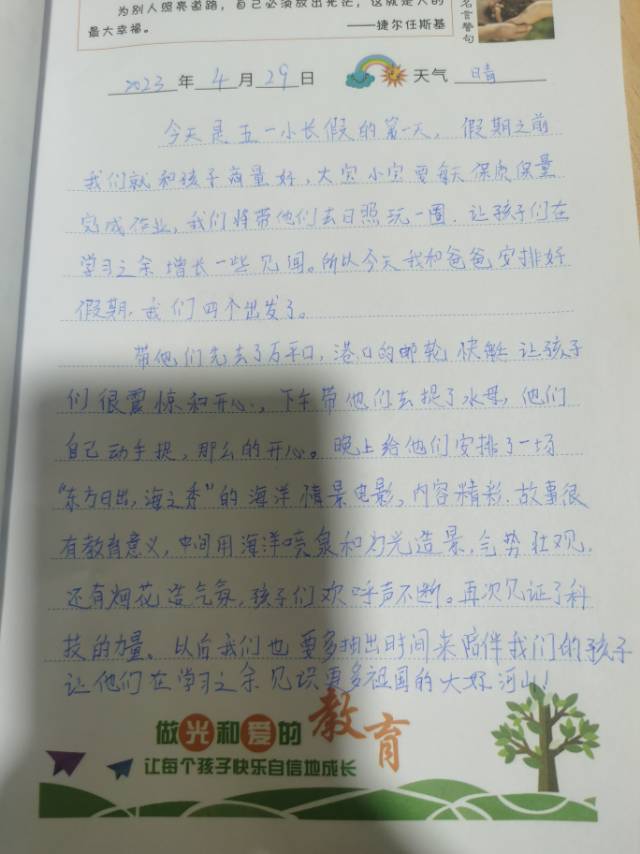 为别人照亮道路，自己必须放出光芒，这就是人的
最大幸福。
——捷尔任斯基
名言警句
2023年4月29日 天气 晴
今天是五一小长假的第一天，假期之前
我们就和孩子商量好，大宝小宝要每天保质保量
完成作业，我们将带他们去日照玩一圈．让孩子们在
学习之余增长一些见闻。所以今天我和爸爸安排好
假期，我们四个出发了。
带他们先去了万平口，港口的邮轮快艇让孩子
们很震惊和开心，下午带他们去捉了水母，他们
自己动手捉，那么的开心。晚上给他们安排了一场
“东方日出，海之秀”的海洋情景电影，内容精彩．故事很
有教育意义，中间用海洋喷泉和灯光造景，气势壮观，
还有烟花造气氛，孩子们欢呼声不断。再次见证了科
技的力量、以后我们也要多抽出时间来陪伴我们的孩子
让他们在学习之余见识更多祖国的大好河山！
做光和爱的教育
让每个孩子快乐自信地成长